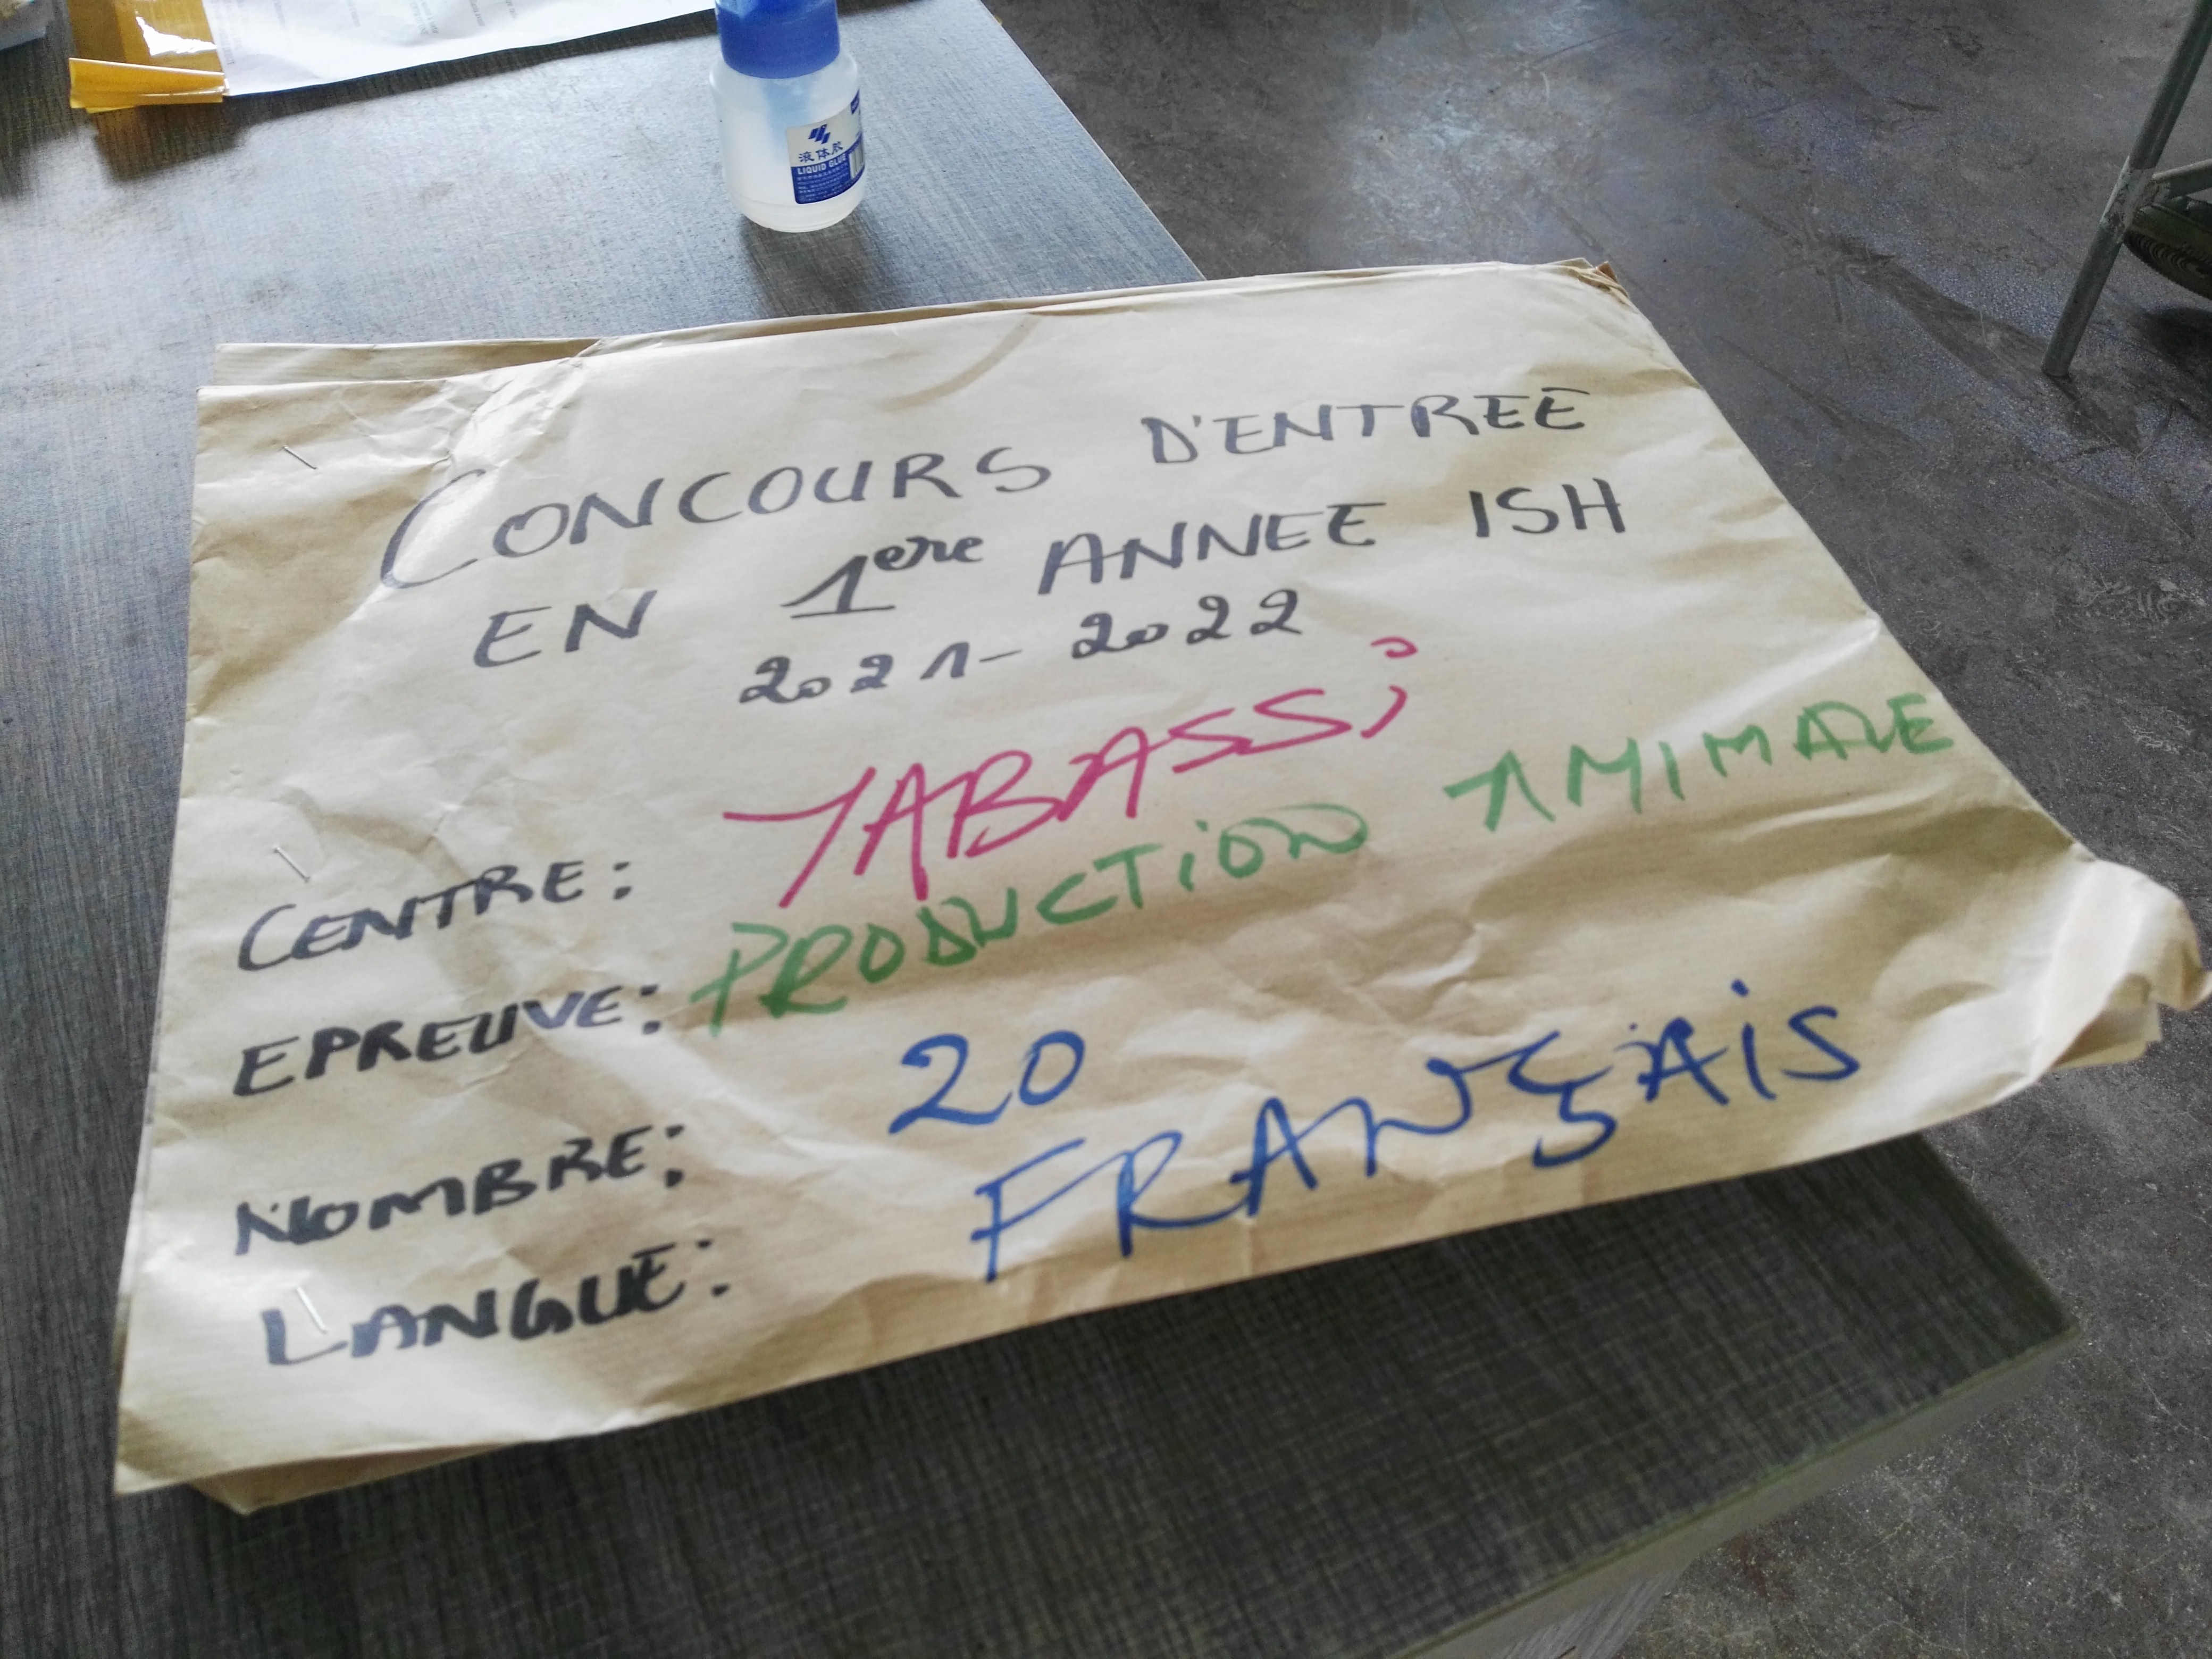 液体胶
LIQUID GLUE
CONCOURS D'ENTREE
EN 1ere ANNEE ISH
2021-2022
CENTRE: YABASSi
EPREUVE: PRODUCTiON ANIMALE
NOMBRE: 20
LANGUE: FRANÇAiS